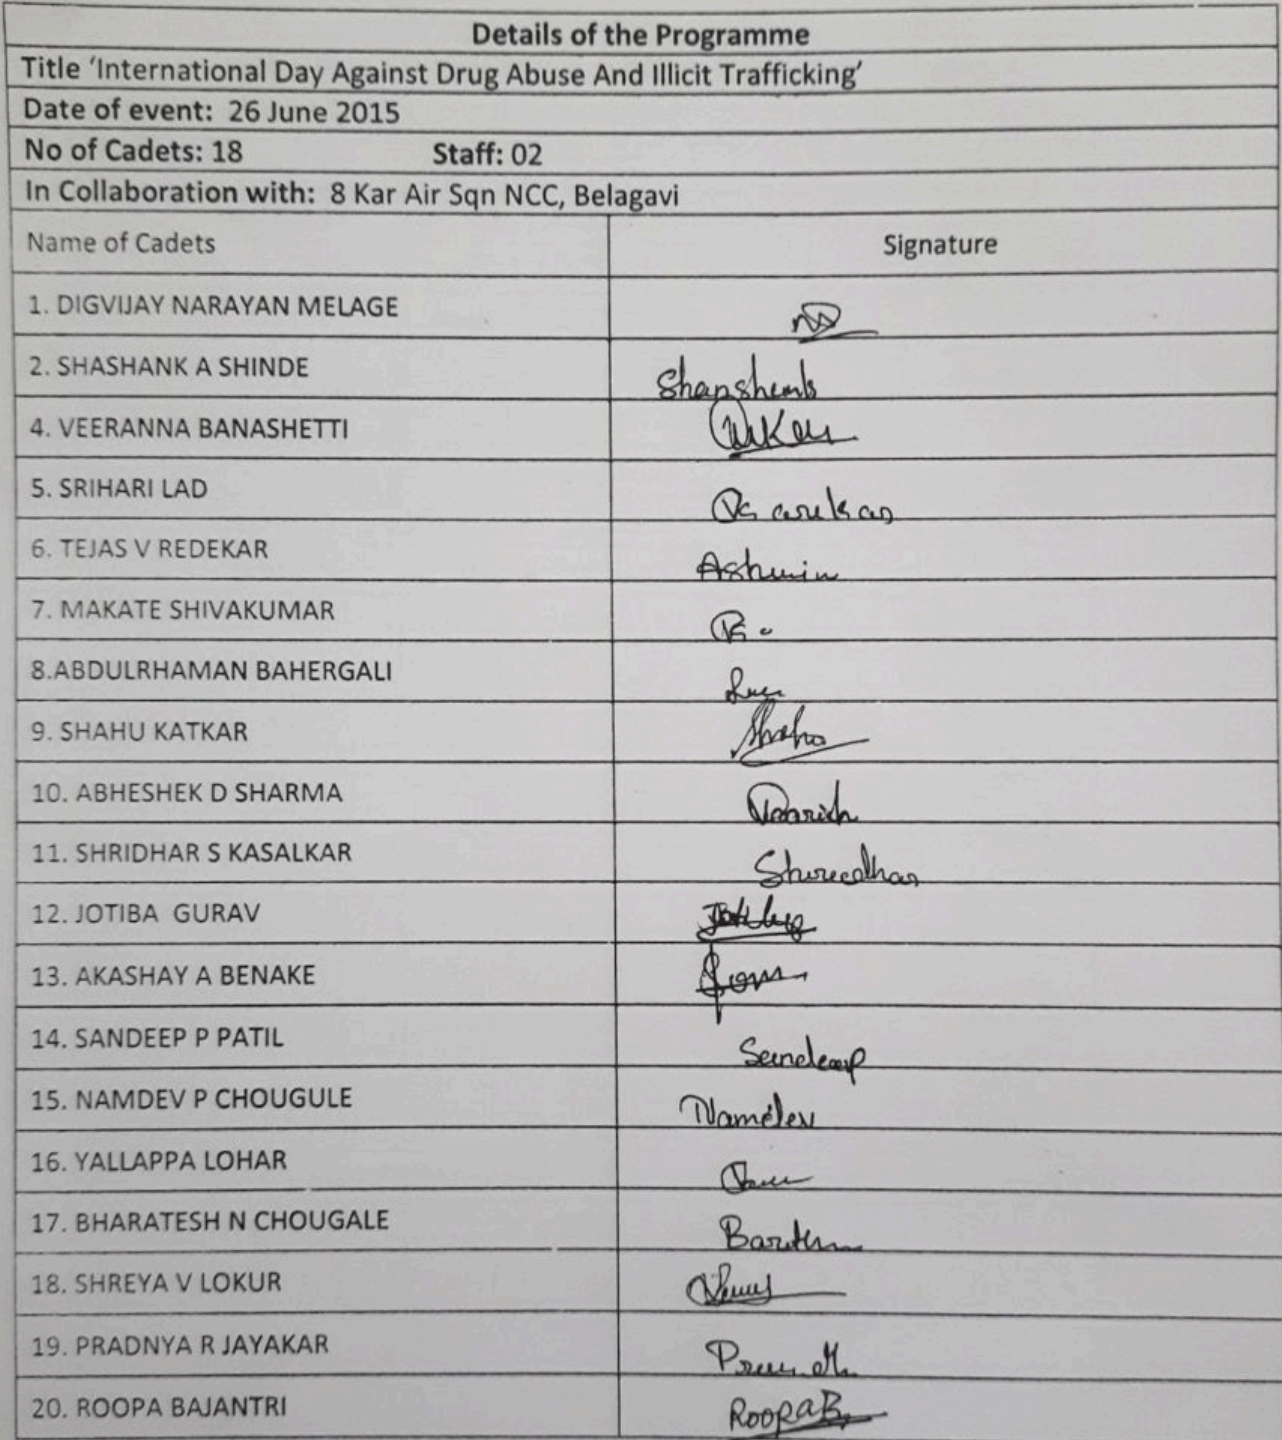 Details of the Programme
Title ‘International Day Against Drug Abuse And Illicit Trafficking’
Date of event: 26 June 2015
No of Cadets: 18 Staff: 02
In Collaboration with: 8 Kar Air Sqn NCC, Belagavi
Name of Cadets Signature
1. DIGVIJAY NARAYAN MELAGE
2. SHASHANK A SHINDE
4. VEERANNA BANASHETTI
5. SRIHARI LAD
6. TEJAS V REDEKAR Ashwin
7. MAKATE SHIVAKUMAR
8.ABDULRHAMAN BAHERGALI
9. SHAHU KATKAR
10. ABHESHEK D SHARMA
11. SHRIDHAR S KASALKAR
12. JOTIBA GURAV
13. AKASHAY A BENAKE
14. SANDEEP P PATIL Sandeep
15. NAMDEV P CHOUGULE Namdev
16. YALLAPPA LOHAR
17. BHARATESH N CHOUGALE
18. SHREYA V LOKUR
19. PRADNYA R JAYAKAR
20. ROOPA BAJANTRI RoopaB